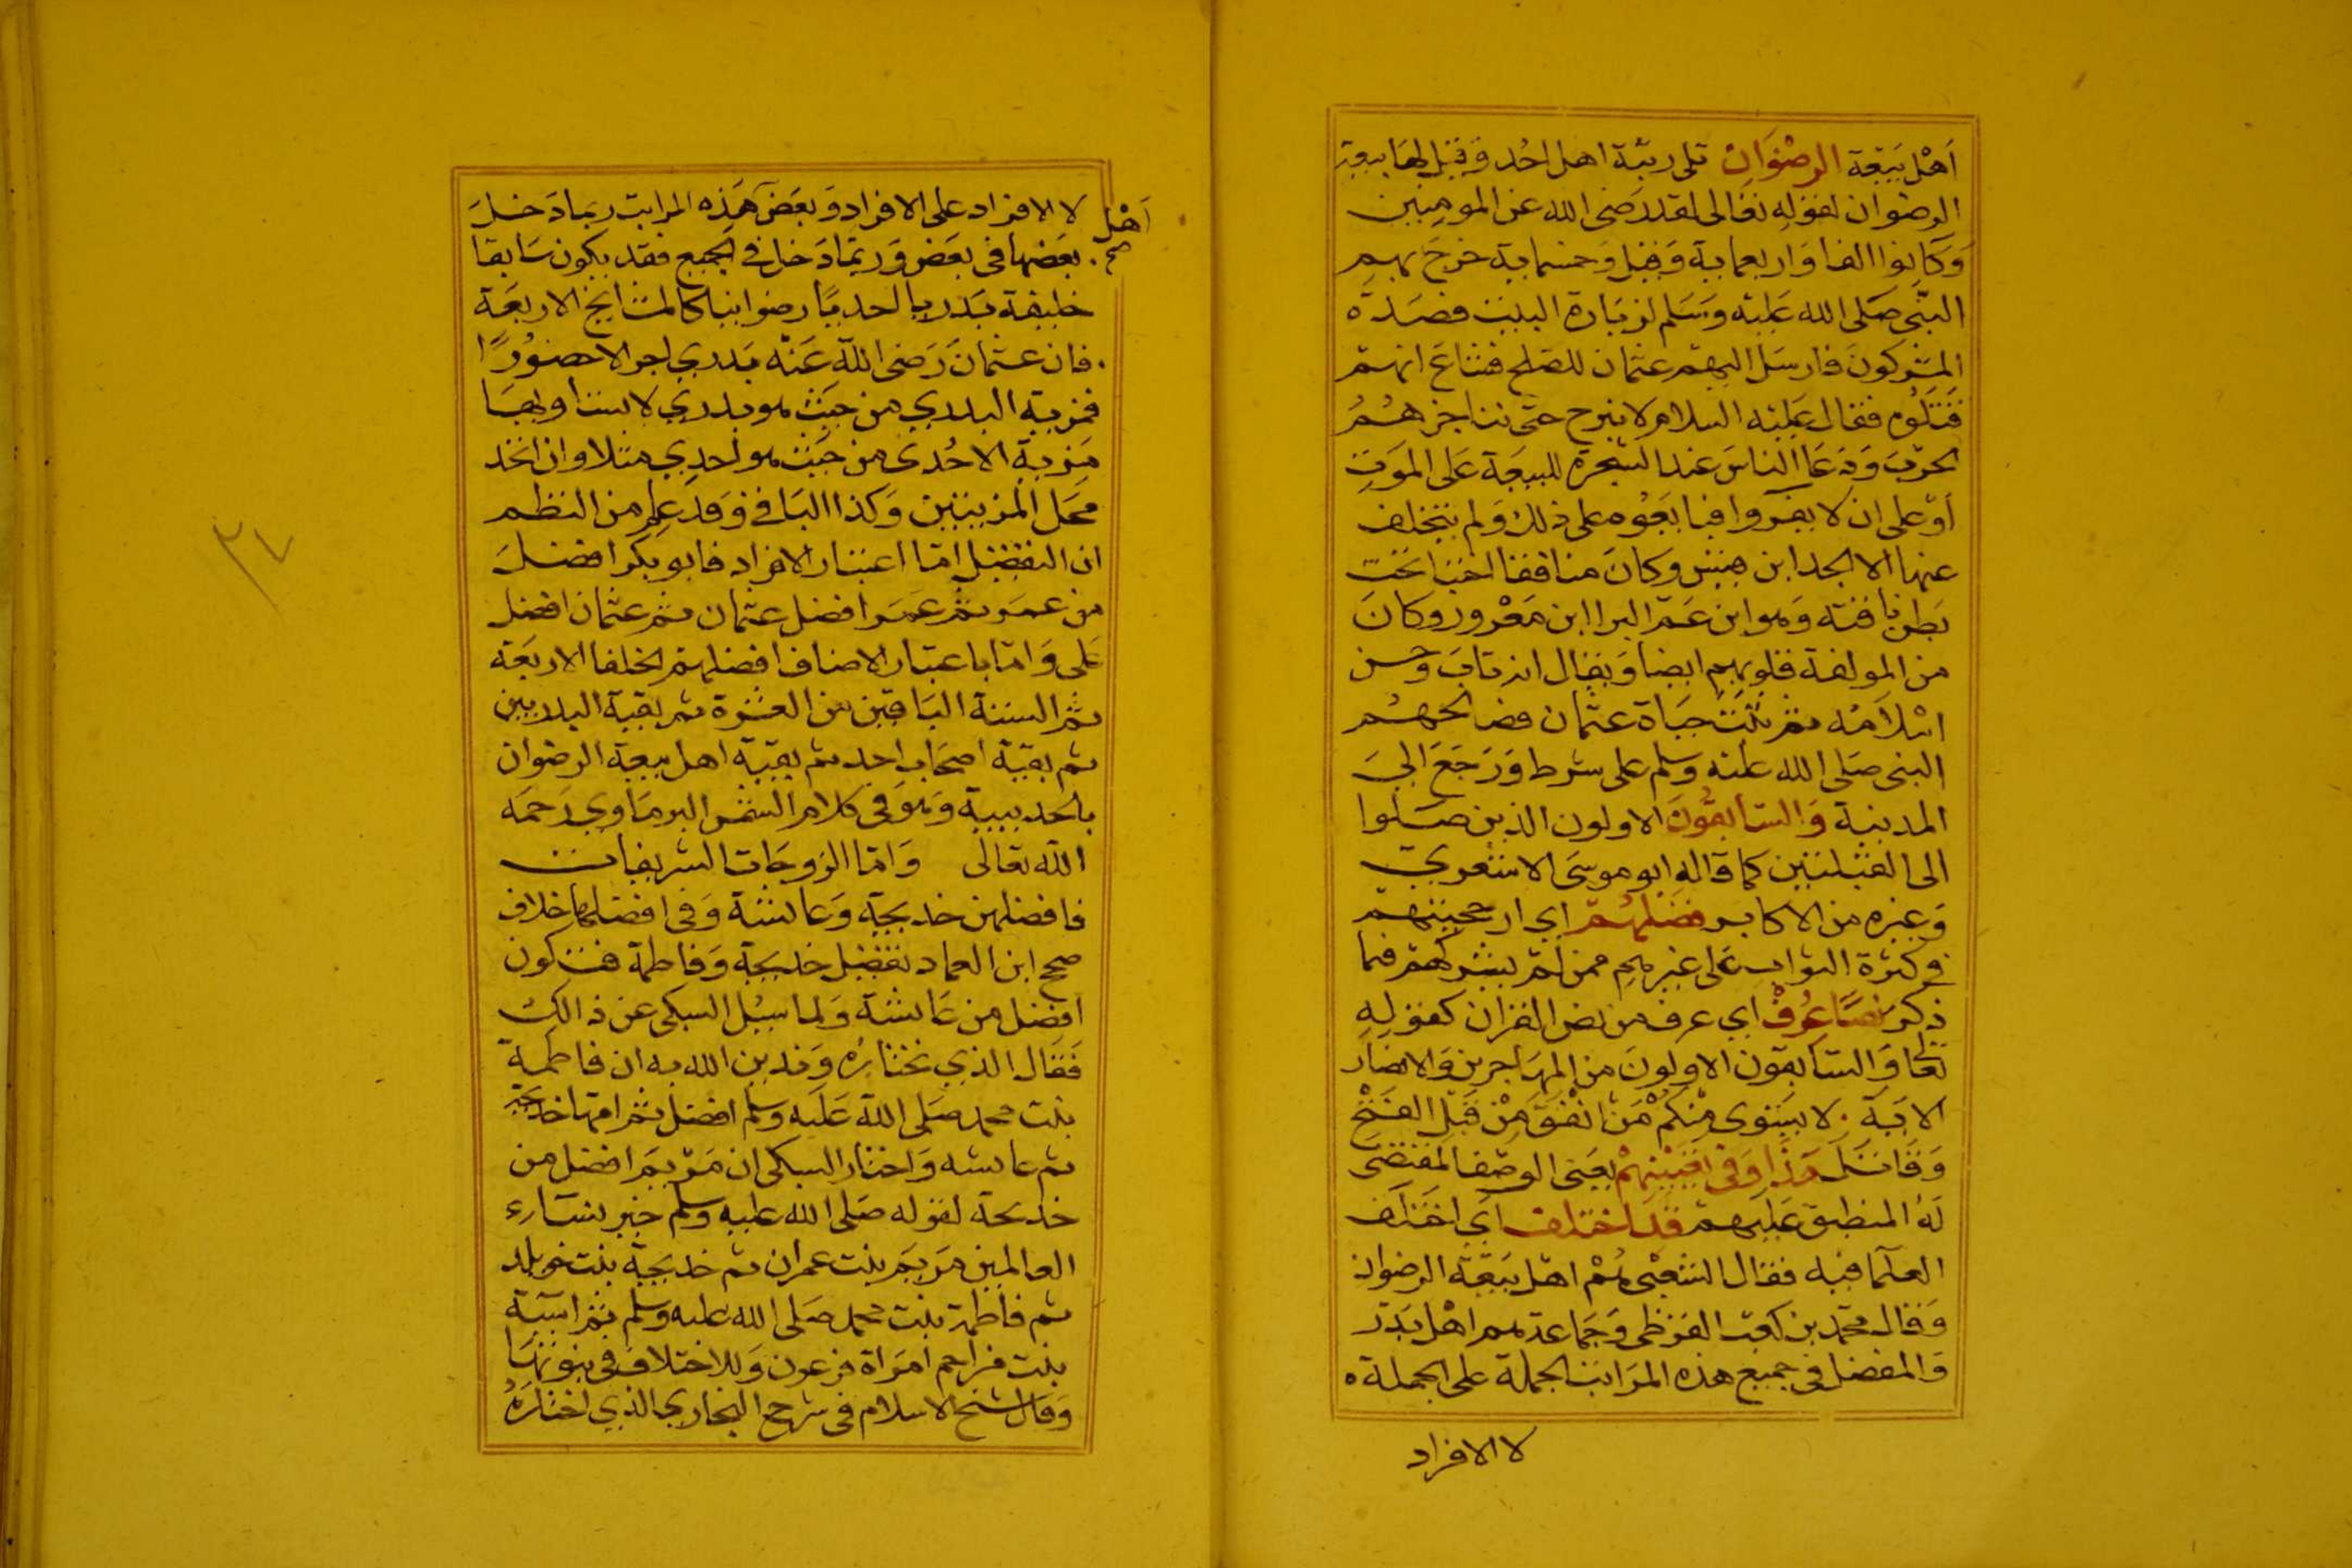 اَهْل بَيعَة الرضْوَان تلى رتبة اهل احُد وَقيْل لهَا بيعة
الرضوان لقوله تعَالى لقد رَضى الله عن المومِنين
وَكانوا الفا وَاربعماية وَقيْل وَخمسماية خرجَ بهم
النّبى صَلى الله عَليْه وَسَلم لزيَارة البيت فصَدّه
المشركونَ فارسَل اليهمْ عثمان للصّلح فشاعَ انهمْ
قتَلوُه فقال عَليْه السلام لا نبرح حتى نناجزهُمُ
الحرْبَ وَدَعَا الناسَ عند الشجرة للبيعَة عَلى الموَت
اوْ على ان لا يفروا فبايعَوُه على ذلك وَلم يتخلف
عنها الا الجد ابن قيس وكانَ منافقا اختبا تحْت
بَطن ناقته وَهو ابن عَم البرا ابن مَعْرور وكانَ
من المولفة قلوبهم ايضا وَيقال انه تابَ وَحسن
اسْلامُه ثم ثبتت حيَاة عثمان فصالحهُم
النبى صَلى الله عليْه وَسلم على شرط وَرَجَعَ الىَ
المدينة وَالسَّابقُونَ الاولون الذين صَلوا
الى القبْلتين كما قاله ابو موسَى الاشعري
وَغيره من الاكابر فضْلهُمْ اي ارجحيتهمْ
فى كثرة الثواب عَلى غيرهم ممن لمْ يشركهمْ فيما
ذكر نَصًّا عُرفْ اي عرف من نص القران كقوله
تعَالى وَالسّابقون الاولونَ من المهَاجرين وَالانصَار
الايَة . لا يسَتوى مِنكُمْ مَنْ انْفقَ مِنْ قَبْل الفَتْح
وَقَاتَلَ هَذا وَفى تعْيينهمْ بعَنى الوصْف المقتضى
لهُ المنطبق عَليهمْ قَد اختلف اى اختلف
العلمَا فيه فقال الشعْبى هُمْ اهْل بَيعَة الرضوان
وَقال محمّد بن كعْب القرظى وَجماعَة هم اهْل بَدْر
وَالمفضل فى جميع هذه المرَاتب الجملة على الجملة ه
لا الافراد
لا الافراد على الافراد وَبعَض هَذه المراتب ربمَا دَخلَ
اَهْل
صح
بعَضها فى بعَض وَربمّا دَخل فى الجميع فقد يكون سَابقا
خليفة بَدريا احديًا رضوانيا كالمشَايخ الاربعَة
. فان عثمانَ رَضى الله عَنْه بَدري اجرا لا حضوُرًا
فمزية البدري من حيَث هو بدري لا يساويهَا
مَزية الاحُدى من حَيث هو احدِي مثلا وان اتحد
محَل المزيتين وَكذا البَاقى وَقد علم من النظم
ان التفضيل امّا اعتبار الافراد فابو بكر افضلَ
من عمَر ثم عمَر افضل عثمان ثم عثمان افضل
عَلى وَامّا باعتبار الاصناف افضلهم الخلفا الاربعَة
ثم الستة البَاقين من العشرَة ثم بقيَّة البدريين
ثم بقيّة اصحَاب احد ثم بقيّة اهل بيعة الرضوان
بالحديبية وَهوَ فى كلام الشمْس البرمَاوي رَحمَه
الله تعَالى وَامّا الزوجَات الشريفات
فافضلهن خديجَة وَعايشة وَفى افضلهما خلاف
صحح ابن العماد تفضيل خديجَة وَفاطمة فتكون
افضل من عَايشة وَلما سيُل السبكى عن ذالك
فَقال الذي نختارُه وَندين الله به ان فاطمَة
بنت محمد صَلى الله عَليه وَسلم افضل ثم امّها خديجَة
ثم عايشه وَاختار السبكى ان مَرْيم افضل من
خديجة لقوله صَلى الله عليه وَسلم خير نسَاء
العالمين مَريمَ بنت عمران ثم خديجة بنت خويلد
ثم فاطمة بنت محمد صَلى الله عليه وَسلم ثم اسية
بنت مزاحم امرَاة فرعون وَللاختلاف فى نبوتها
وَقال شيخ الاسلام فى شرح البخاري الذي اختارَهُ
٢٧